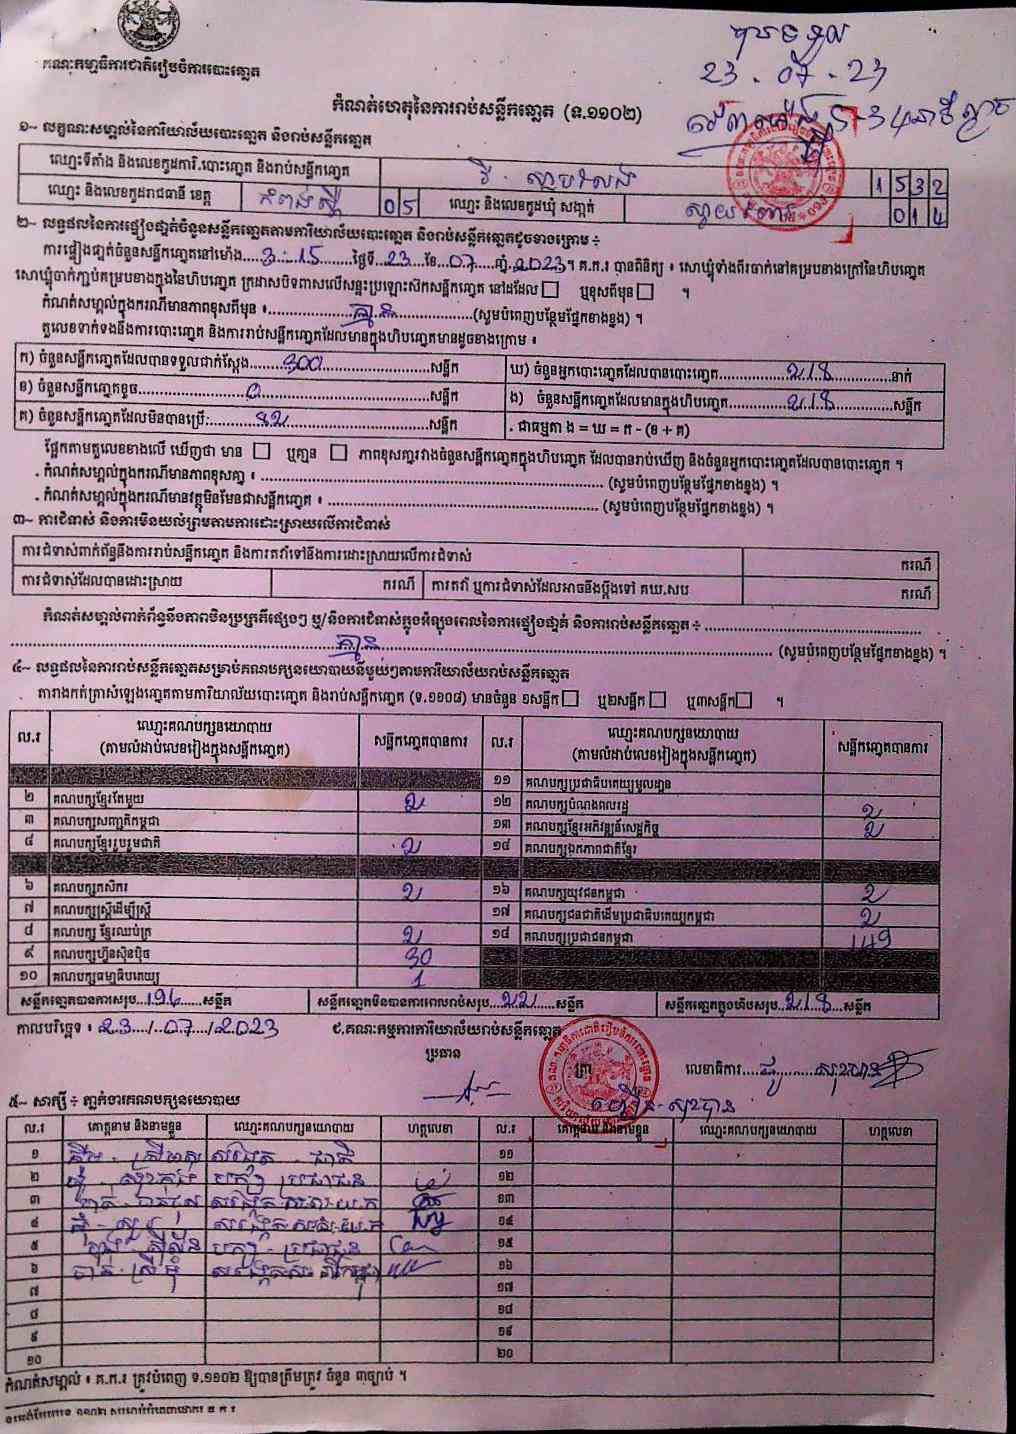 គណៈកម្មាធិការជាតិរៀបចំការបោះឆ្នោត
23 - 07 - 23
កំណត់ហេតុនៃការរាប់សន្លឹកឆ្នោត (ទ.១១០២)
១~ លក្ខណៈសម្គាល់នៃការិយាល័យបោះឆ្នោត និងរាប់សន្លឹកឆ្នោត
ឈ្មោះទីតាំង និងលេខកូដការិ.បោះឆ្នោត និងរាប់សន្លឹកឆ្នោត 1 5 3 2
ឈ្មោះ និងលេខកូដរាជធានី ខេត្ត កំពង់ស្ពឺ 0 5 ឈ្មោះ និងលេខកូដឃុំ សង្កាត់ 0 1 4
២~ លទ្ធផលនៃការផ្ទៀងផ្ទាត់ចំនួនសន្លឹកឆ្នោតតាមការិយាល័យបោះឆ្នោត និងរាប់សន្លឹកឆ្នោតដូចខាងក្រោម ÷
ការផ្ទៀងផ្ទាត់ចំនួនសន្លឹកឆ្នោតនៅម៉ោង 3:15 ថ្ងៃទី 23 ខែ 07 ឆ្នាំ 2023 ។ គ.ក.រ បានពិនិត្យ ៖ សោឃ្លុំទាំងពីរចាក់នៅគម្របខាងក្រៅនៃហិបឆ្នោត
សោឃ្លុំចាក់ភ្ជាប់គម្របខាងក្នុងនៃហិបឆ្នោត ក្រដាសបិទពាសលើសន្ទះប្រឡោះសិកសន្លឹកឆ្នោត នៅដដែល ឬខុសពីមុន ។
កំណត់សម្គាល់ក្នុងករណីមានភាពខុសពីមុន ៖ គ្មាន (សូមបំពេញបន្ថែមផ្នែកខាងខ្នង) ។
តួលេខទាក់ទងនឹងការបោះឆ្នោត និងការរាប់សន្លឹកឆ្នោតដែលមានក្នុងហិបឆ្នោតមានដូចខាងក្រោម ៖
ក) ចំនួនសន្លឹកឆ្នោតដែលបានទទួលជាក់ស្តែង 300 សន្លឹក ឃ) ចំនួនអ្នកបោះឆ្នោតដែលបានបោះឆ្នោត 218 នាក់
ខ) ចំនួនសន្លឹកឆ្នោតខូច 0 សន្លឹក ង) ចំនួនសន្លឹកឆ្នោតដែលមានក្នុងហិបឆ្នោត 218 សន្លឹក
គ) ចំនួនសន្លឹកឆ្នោតដែលមិនបានប្រើ 82 សន្លឹក . ជាធម្មតា ង = ឃ = ក - (ខ + គ)
ផ្អែកតាមតួលេខខាងលើ ឃើញថា មាន ឬគ្មាន ភាពខុសគ្នារវាងចំនួនសន្លឹកឆ្នោតក្នុងហិបឆ្នោត ដែលបានរាប់ឃើញ និងចំនួនអ្នកបោះឆ្នោតដែលបានបោះឆ្នោត ។
. កំណត់សម្គាល់ក្នុងករណីមានភាពខុសគ្នា ៖ (សូមបំពេញបន្ថែមផ្នែកខាងខ្នង) ។
. កំណត់សម្គាល់ក្នុងករណីមានវត្ថុមិនមែនជាសន្លឹកឆ្នោត ៖ (សូមបំពេញបន្ថែមផ្នែកខាងខ្នង) ។
៣~ ការជំទាស់ និងការមិនយល់ព្រមតាមការដោះស្រាយលើការជំទាស់
ការជំទាស់ពាក់ព័ន្ធនឹងការរាប់សន្លឹកឆ្នោត និងការតវ៉ាទៅនឹងការដោះស្រាយលើការជំទាស់ ករណី
ការជំទាស់ដែលបានដោះស្រាយ ករណី ការតវ៉ា ឬការជំទាស់ដែលអាចនឹងប្តឹងទៅ គឃ.សប ករណី
កំណត់សម្គាល់ពាក់ព័ន្ធនឹងភាពមិនប្រក្រតីផ្សេងៗ ឬ/និងការជំទាស់ក្នុងអំឡុងពេលនៃការផ្ទៀងផ្ទាត់ និងការរាប់សន្លឹកឆ្នោត ÷
គ្មាន (សូមបំពេញបន្ថែមផ្នែកខាងខ្នង) ។
៤~ លទ្ធផលនៃការរាប់សន្លឹកឆ្នោតសម្រាប់គណបក្សនយោបាយនីមួយៗតាមការិយាល័យរាប់សន្លឹកឆ្នោត
តារាងកត់ត្រាសំឡេងឆ្នោតតាមការិយាល័យបោះឆ្នោត និងរាប់សន្លឹកឆ្នោត (ទ.១១០៨) មានចំនួន ១សន្លឹក ឬ២សន្លឹក ឬ៣សន្លឹក ។
ល.រ ឈ្មោះគណបក្សនយោបាយ (តាមលំដាប់លេខរៀងក្នុងសន្លឹកឆ្នោត) សន្លឹកឆ្នោតបានការ ល.រ ឈ្មោះគណបក្សនយោបាយ (តាមលំដាប់លេខរៀងក្នុងសន្លឹកឆ្នោត) សន្លឹកឆ្នោតបានការ
១១ គណបក្សប្រជាធិបតេយ្យមូលដ្ឋាន
២ គណបក្សខ្មែរតែមួយ 2 ១២ គណបក្សបំណុងពលរដ្ឋ 2
៣ គណបក្សសញ្ជាតិកម្ពុជា ១៣ គណបក្សខ្មែរអភិវឌ្ឍន៍សេដ្ឋកិច្ច 2
៤ គណបក្សខ្មែររួបរួមជាតិ 2 ១៤ គណបក្សឯកភាពជាតិខ្មែរ
៦ គណបក្សកសិករ 2 ១៦ គណបក្សយុវជនកម្ពុជា 2
៧ គណបក្សស្ត្រីដើម្បីស្ត្រី ១៧ គណបក្សជនជាតិដើមប្រជាធិបតេយ្យកម្ពុជា 2
៨ គណបក្ស ខ្មែរឈប់ក្រ 2 ១៨ គណបក្សប្រជាជនកម្ពុជា 149
៩ គណបក្សហ្វ៊ុនស៊ិនប៉ិច 30
១០ គណបក្សធម្មាធិបតេយ្យ 1
សន្លឹកឆ្នោតបានការសរុប 196 សន្លឹក សន្លឹកឆ្នោតមិនបានការពេលរាប់សរុប 22 សន្លឹក សន្លឹកឆ្នោតក្នុងហិបសរុប 218 សន្លឹក
កាលបរិច្ឆេទ ៖ 23 / 07 / 2023 ជ.គណៈកម្មការការិយាល័យរាប់សន្លឹកឆ្នោត
ប្រធាន
លេខាធិការ
៥~ សាក្សី ÷ ភ្នាក់ងារគណបក្សនយោបាយ
ល.រ គោត្តនាម និងនាមខ្លួន ឈ្មោះគណបក្សនយោបាយ ហត្ថលេខា ល.រ គោត្តនាម និងនាមខ្លួន ឈ្មោះគណបក្សនយោបាយ ហត្ថលេខា
១ ១១
២ បក្ស ប្រជាជន ១២
៣ ១៣
៤ ១៤
៥ បក្ស ប្រជាជន ១៥
៦ ១៦
៧ ១៧
៨ ១៨
៩ ១៩
១០ ២០
កំណត់សម្គាល់ ៖ គ.ក.រ ត្រូវបំពេញ ទ.១១០២ ឱ្យបានត្រឹមត្រូវ ចំនួន ៣ច្បាប់ ។